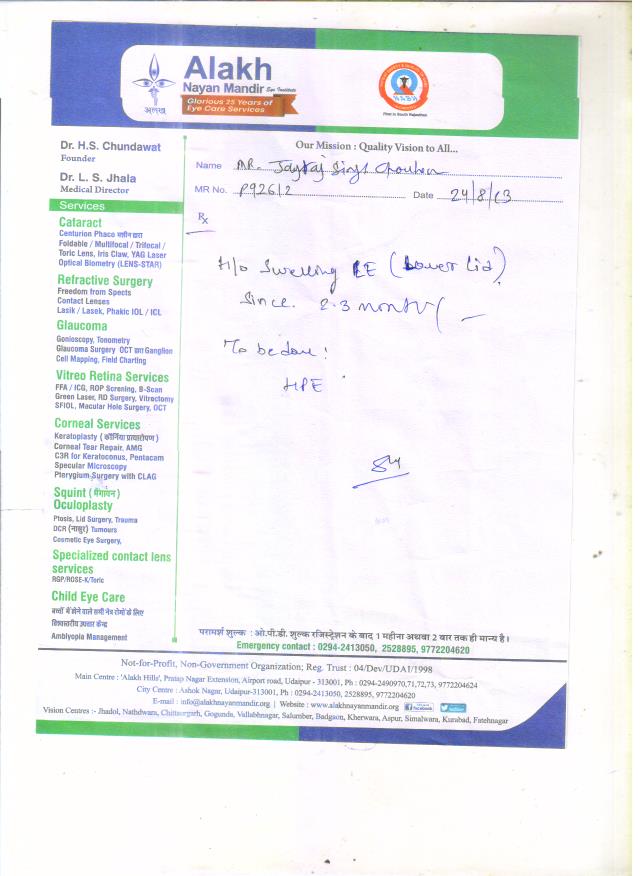 Alakh
Nayan Mandir Eye Institute
Glorious 25 Years of
Eye Care Services
अलख
NABH
First in South Rajasthan
Dr. H.S. Chundawat
Founder
Dr. L. S. Jhala
Medical Director
Services
Cataract
Centurion Phaco मशीन द्वारा
Foldable / Multifocal / Trifocal /
Toric Lens, Iris Claw, YAG Laser
Optical Biometry (LENS-STAR)
Refractive Surgery
Freedom from Spects
Contact Lenses
Lasik / Lasek, Phakic IOL / ICL
Glaucoma
Gonioscopy, Tonometry
Glaucoma Surgery OCT द्वारा Ganglion
Cell Mapping, Field Charting
Vitreo Retina Services
FFA / ICG, ROP Screning, B-Scan
Green Laser, RD Surgery, Vitrectomy
SFIOL, Macular Hole Surgery, OCT
Corneal Services
Keratoplasty (कॉर्निया प्रत्यारोपण)
Corneal Tear Repair, AMG
C3R for Keratoconus, Pentacam
Specular Microscopy
Pterygium Surgery with CLAG
Squint (भेंगापन)
Oculoplasty
Ptosis, Lid Surgery, Trauma
DCR (नासूर) Tumours
Cosmetic Eye Surgery,
Specialized contact lens
services
RGP/ROSE-K/Toric
Child Eye Care
बच्चों में होने वाले सभी नेत्र रोगों के लिए
विश्वस्तरीय उपचार केन्द्र
Amblyopia Management
Our Mission : Quality Vision to All...
Name MR. Singh Chouhan
MR No. P92612 Date 24/8/
Rx
H/o Swelling (Lower Lid)
Since 2-3 month
To be done:
HPE
परामर्श शुल्क : ओ.पी.डी. शुल्क रजिस्ट्रेशन के बाद 1 महीना अथवा 2 बार तक ही मान्य है।
Emergency contact : 0294-2413050, 2528895, 9772204620
Not-for-Profit, Non-Government Organization; Reg. Trust : 04/Dev/UDAI/1998
Main Centre : 'Alakh Hills', Pratap Nagar Extension, Airport road, Udaipur - 313001, Ph : 0294-2490970,71,72,73, 9772204624
City Centre : Ashok Nagar, Udaipur-313001, Ph : 0294-2413050, 2528895, 9772204620
E-mail : info@alakhnayanmandir.org | Website : www.alakhnayanmandir.org facebook twitter
Vision Centres :- Jhadol, Nathdwara, Chittaurgarh, Gogunda, Vallabhnagar, Salumber, Badgaon, Kherwara, Aspur, Simalwara, Kurabad, Fatehnagar